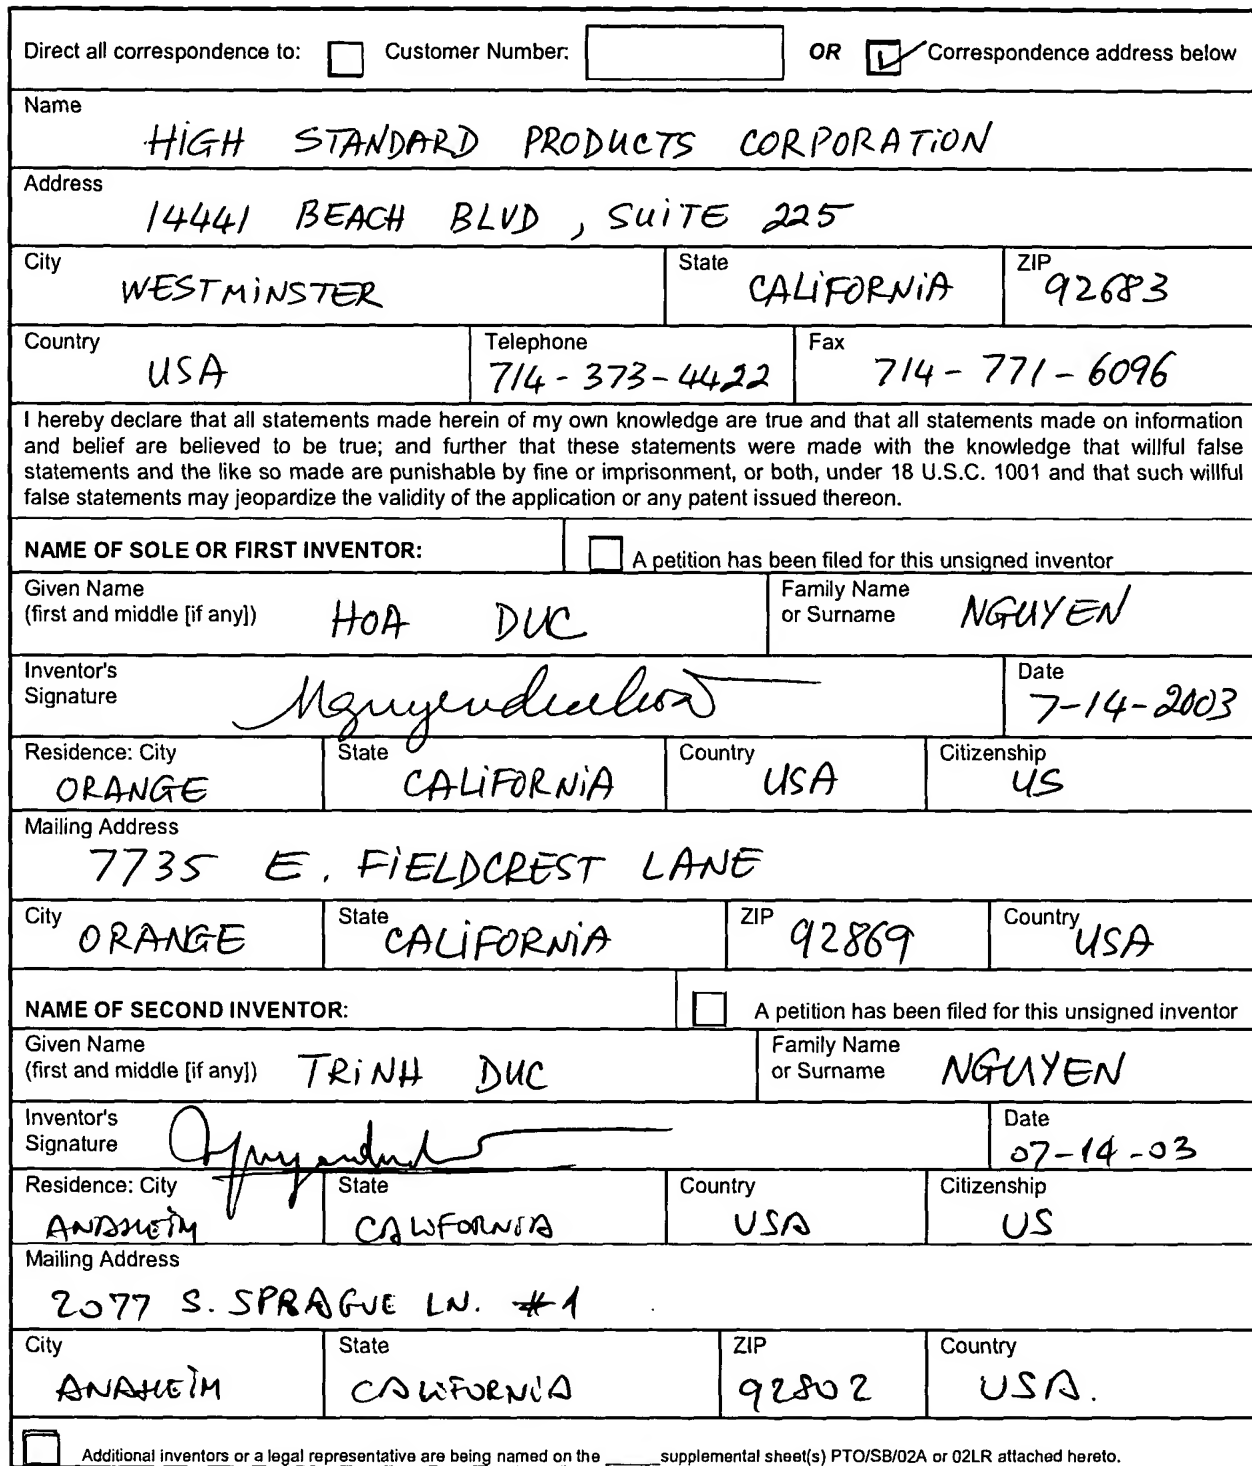 Direct all correspondence to: Customer Number: OR Correspondence address below
Name
HIGH STANDARD PRODUCTS CORPORATION
Address
14441 BEACH BLVD, SUITE 225
City State ZIP
WESTMINSTER CALIFORNIA 92683
Country Telephone Fax
USA 714-373-4422 714-771-6096
I hereby declare that all statements made herein of my own knowledge are true and that all statements made on information
and belief are believed to be true; and further that these statements were made with the knowledge that willful false
statements and the like so made are punishable by fine or imprisonment, or both, under 18 U.S.C. 1001 and that such willful
false statements may jeopardize the validity of the application or any patent issued thereon.
NAME OF SOLE OR FIRST INVENTOR: A petition has been filed for this unsigned inventor
Given Name Family Name
(first and middle [if any]) HOA DUC or Surname NGUYEN
Inventor's Date
Signature Nguyenduchoa 7-14-2003
Residence: City State Country Citizenship
ORANGE CALIFORNIA USA US
Mailing Address
7735 E. FIELDCREST LANE
City State ZIP Country
ORANGE CALIFORNIA 92869 USA
NAME OF SECOND INVENTOR: A petition has been filed for this unsigned inventor
Given Name Family Name
(first and middle [if any]) TRINH DUC or Surname NGUYEN
Inventor's Date
Signature 07-14-03
Residence: City State Country Citizenship
ANAHEIM CALIFORNIA USA US
Mailing Address
2077 S. SPRAGUE LN. #1
City State ZIP Country
ANAHEIM CALIFORNIA 92802 USA.
Additional inventors or a legal representative are being named on the _____supplemental sheet(s) PTO/SB/02A or 02LR attached hereto.